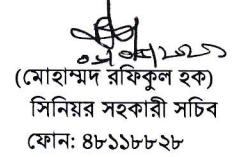 (মোহাম্মদ রফিকুল হক)
সিনিয়র সহকারী সচিব
ফোন: ৪৮১১৮৮২৮